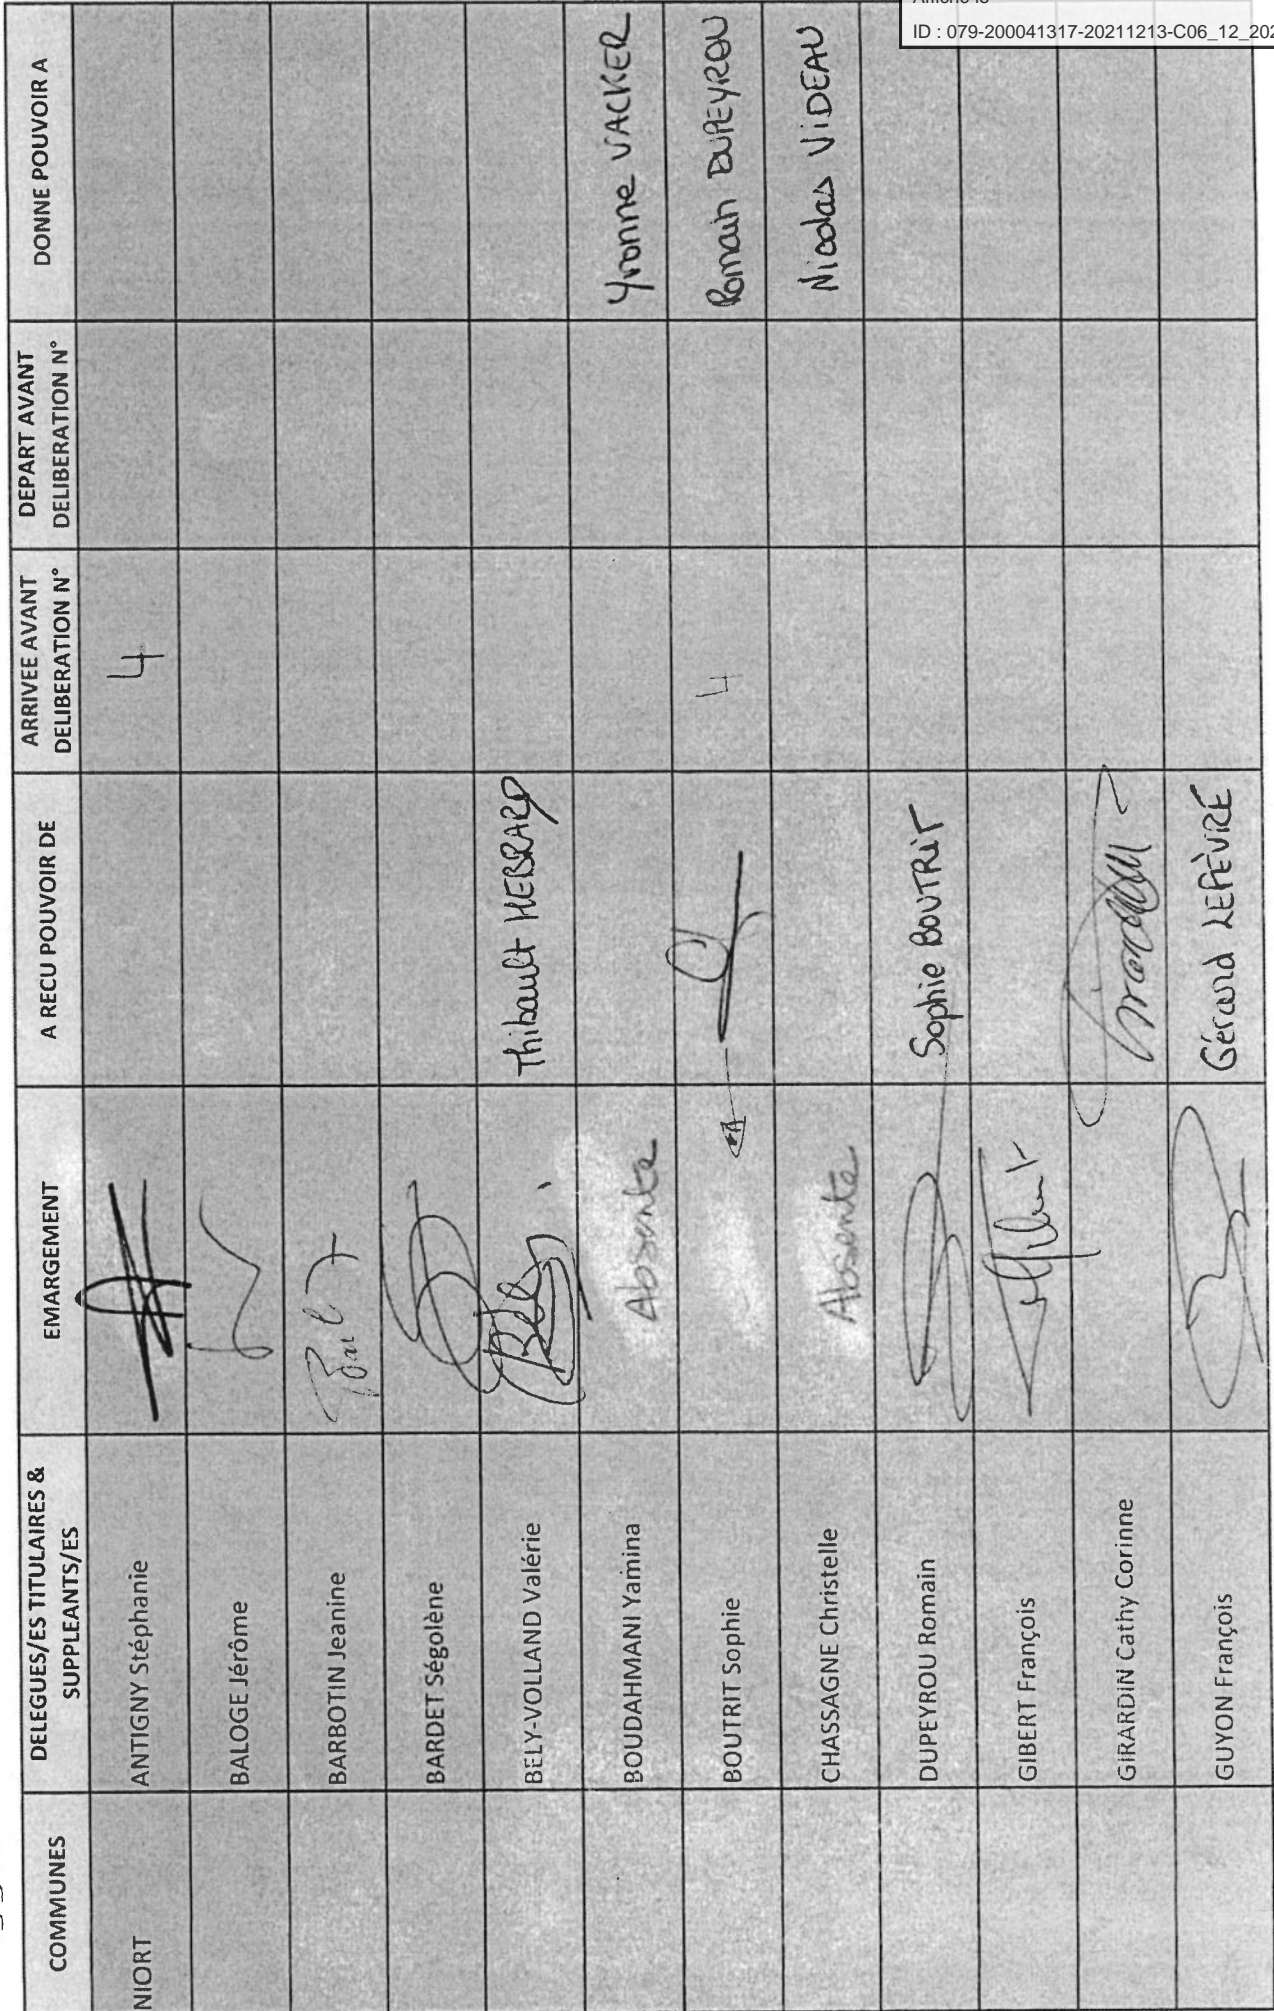 ID : 079-200041317-20211213-C06_12_202
COMMUNES
DELEGUES/ES TITULAIRES &
SUPPLEANTS/ES
EMARGEMENT
A RECU POUVOIR DE
ARRIVEE AVANT
DELIBERATION N°
DEPART AVANT
DELIBERATION N°
DONNE POUVOIR A
NIORT
ANTIGNY Stéphanie
4
BALOGE Jérôme
BARBOTIN Jeanine
BARDET Ségolène
BELY-VOLLAND Valérie
Thibault HEBRARD
BOUDAHMANI Yamina
Absente
Yvonne VACKER
BOUTRIT Sophie
4
Romain DUPEYROU
CHASSAGNE Christelle
Absente
Nicolas VIDEAU
DUPEYROU Romain
Sophie BOUTRIT
GIBERT François
GIRARDIN Cathy Corinne
GUYON François
Gérard LEFÈVRE